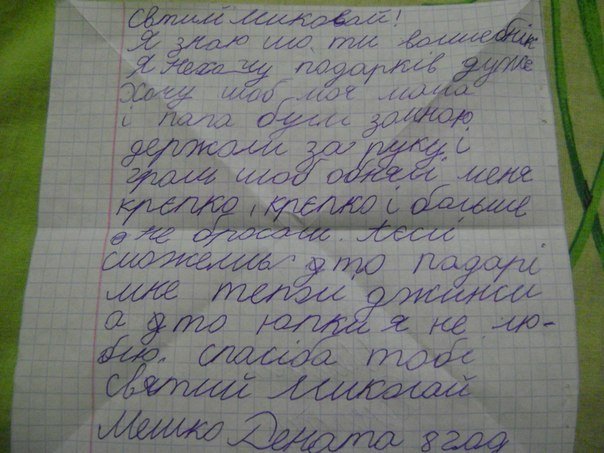 Свтий Миковай!
Я знаю шо ти волшебнік
Я нехачу подарків дуже
Хочу шоб моя мама
і папа були замною
держали за руку і
грали шоб обняли меня
крєпко, крєпко і больше
не бросали. Аєслі
сможеиш то падарі
мне тепли джинси
а то юпки я не лю-
бію. спасіба тобі
святий Миколай
Мешко Дената 8 год